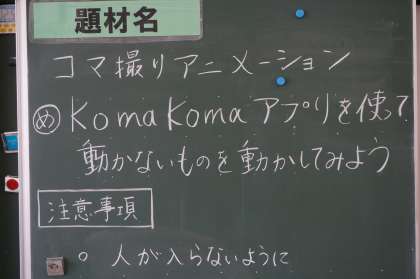 題材名
コマ撮りアニメーション
め KomaKomaアプリを使って
動かないものを動かしてみよう
注意事項
○ 人が入らないように